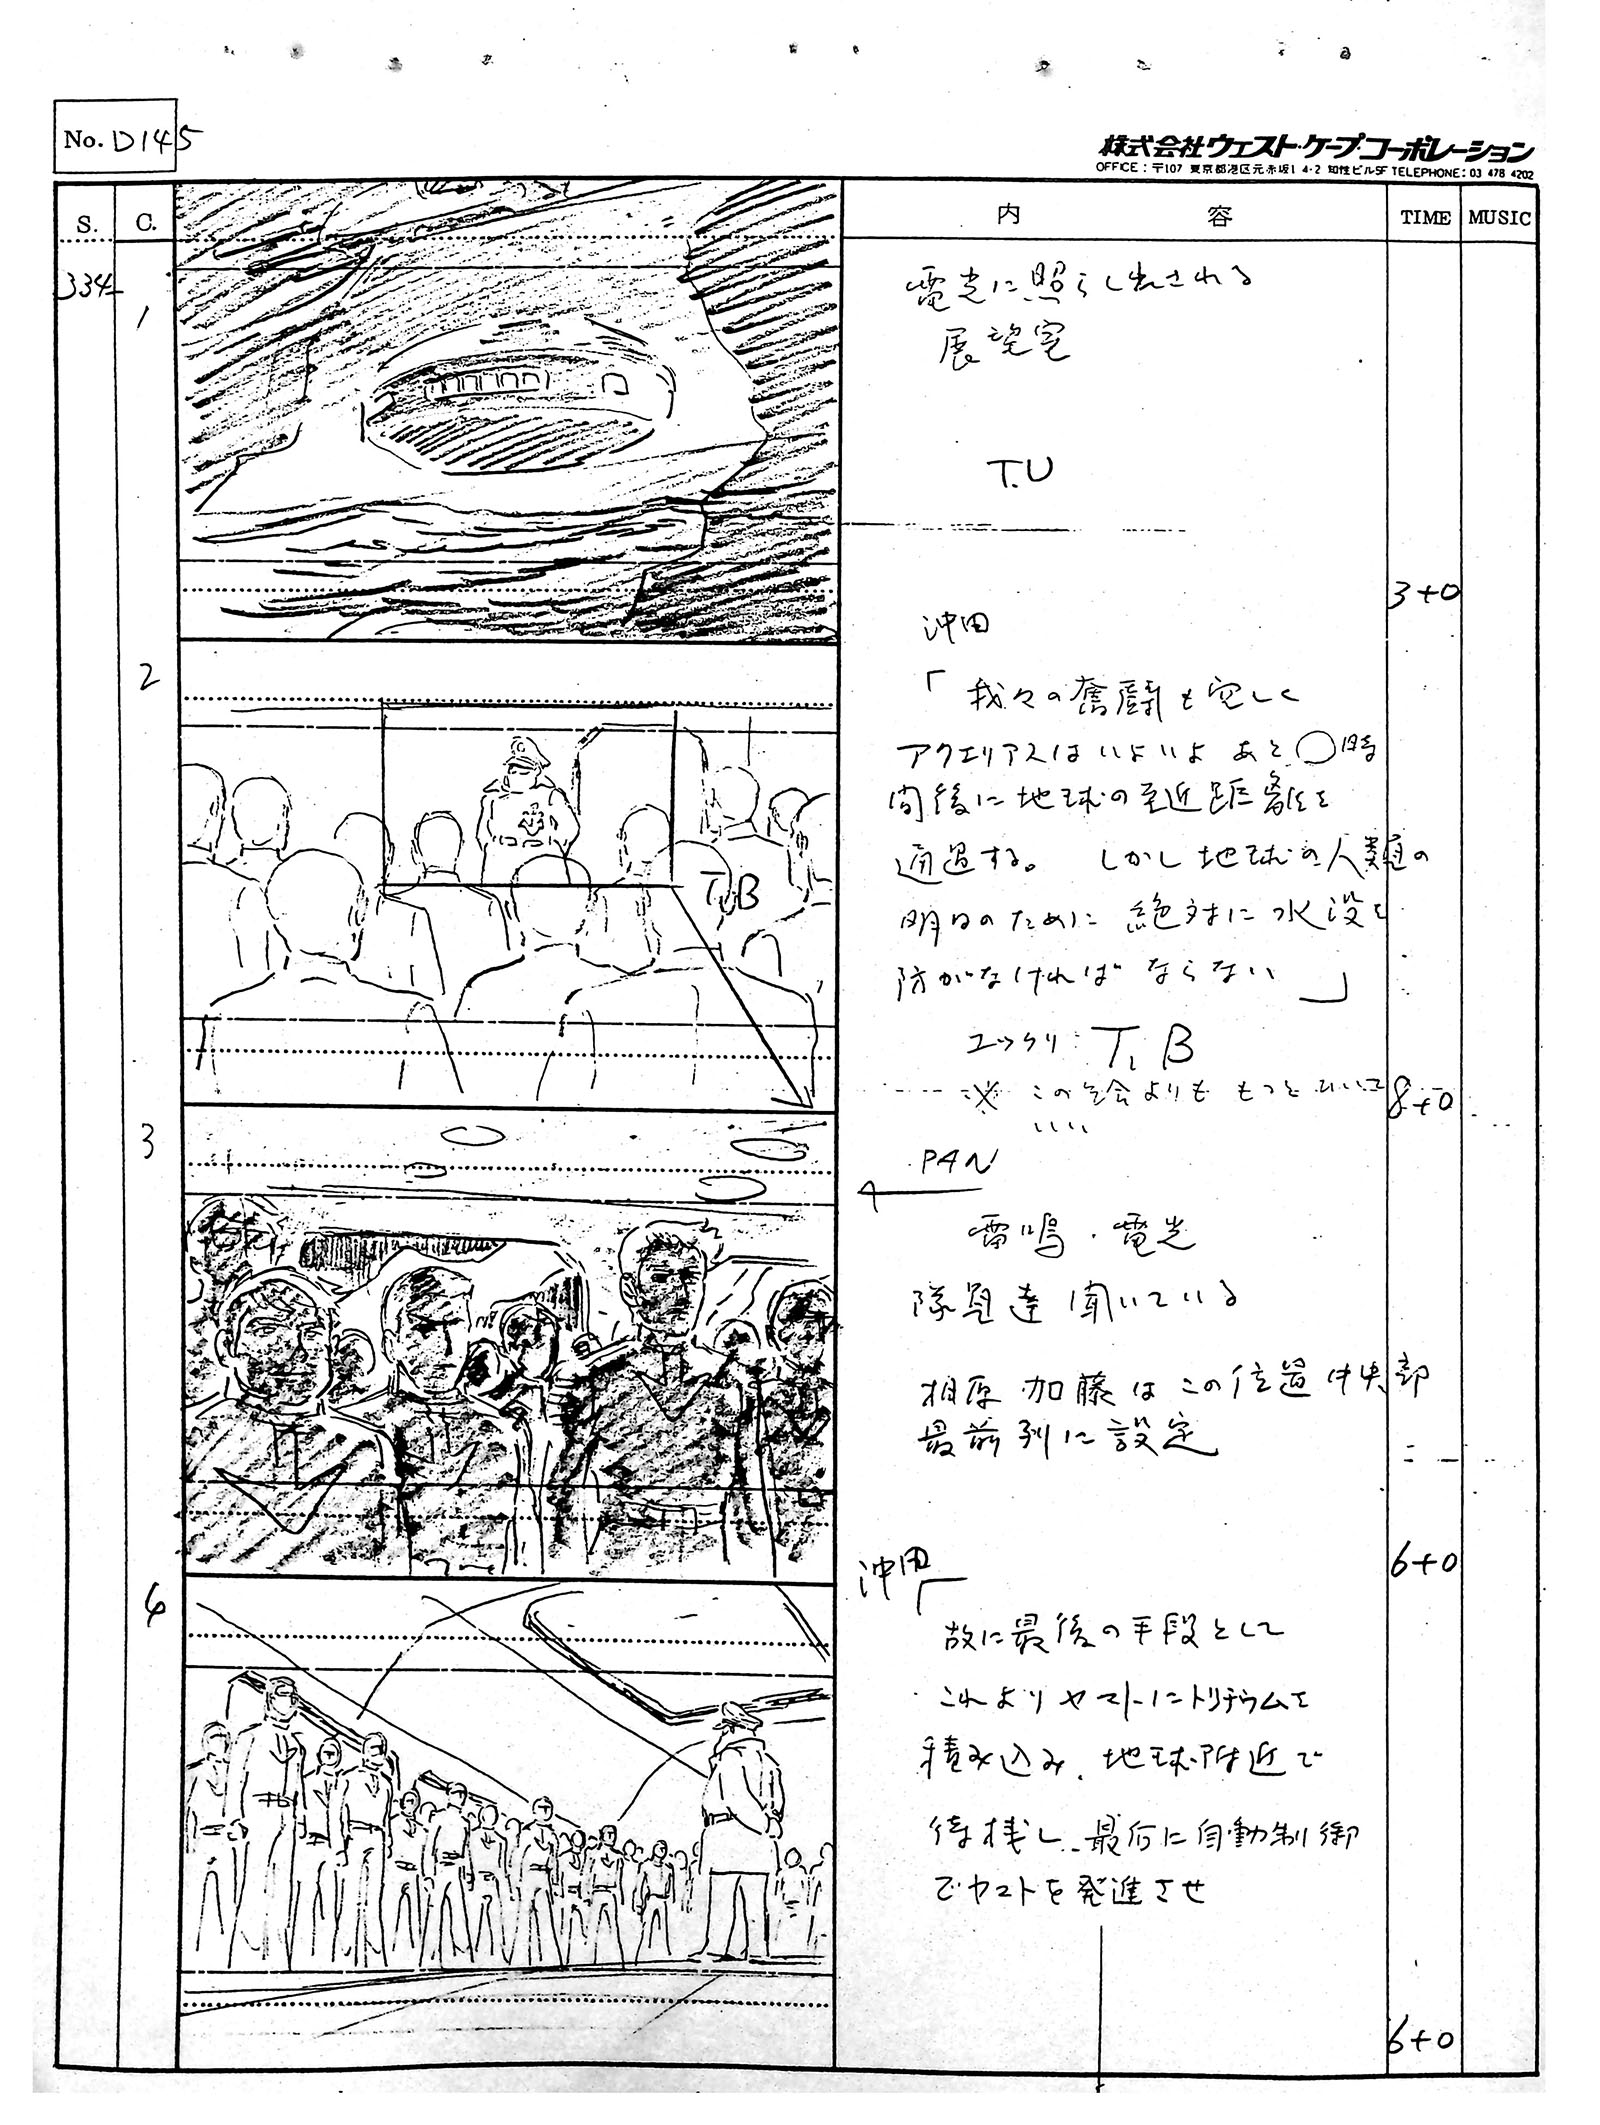 No. D145
株式会社ウエスト・ケープ・コーポレーション
OFFICE：〒107 東京都港区元赤坂1 4-2 知性ビル5F TELEPHONE：03 478 4202
S. C. 内容 TIME MUSIC
334
1
電光に照らし出される
展望室
T.U
3+0
2
沖田
「我々の奮闘も空しく
アクエリアスはいよいよ あと〇時
間後に地球の至近距離を
通過する。 しかし地球の人類の
明日のために 絶対に水没を
防がなければ ならない」
T.B
ユックリ T.B
※ この絵よりも もっとひいて
8+0
3
PAN
雷鳴・電光
隊員達 聞いている
相原 加藤は この位置 中央部
最前列に設定
6+0
4
沖田
「故に最後の手段として
これより ヤマトにトリチウムを
積み込み、地球附近で
待機し、最后に自動制御
でヤマトを発進させ
6+0